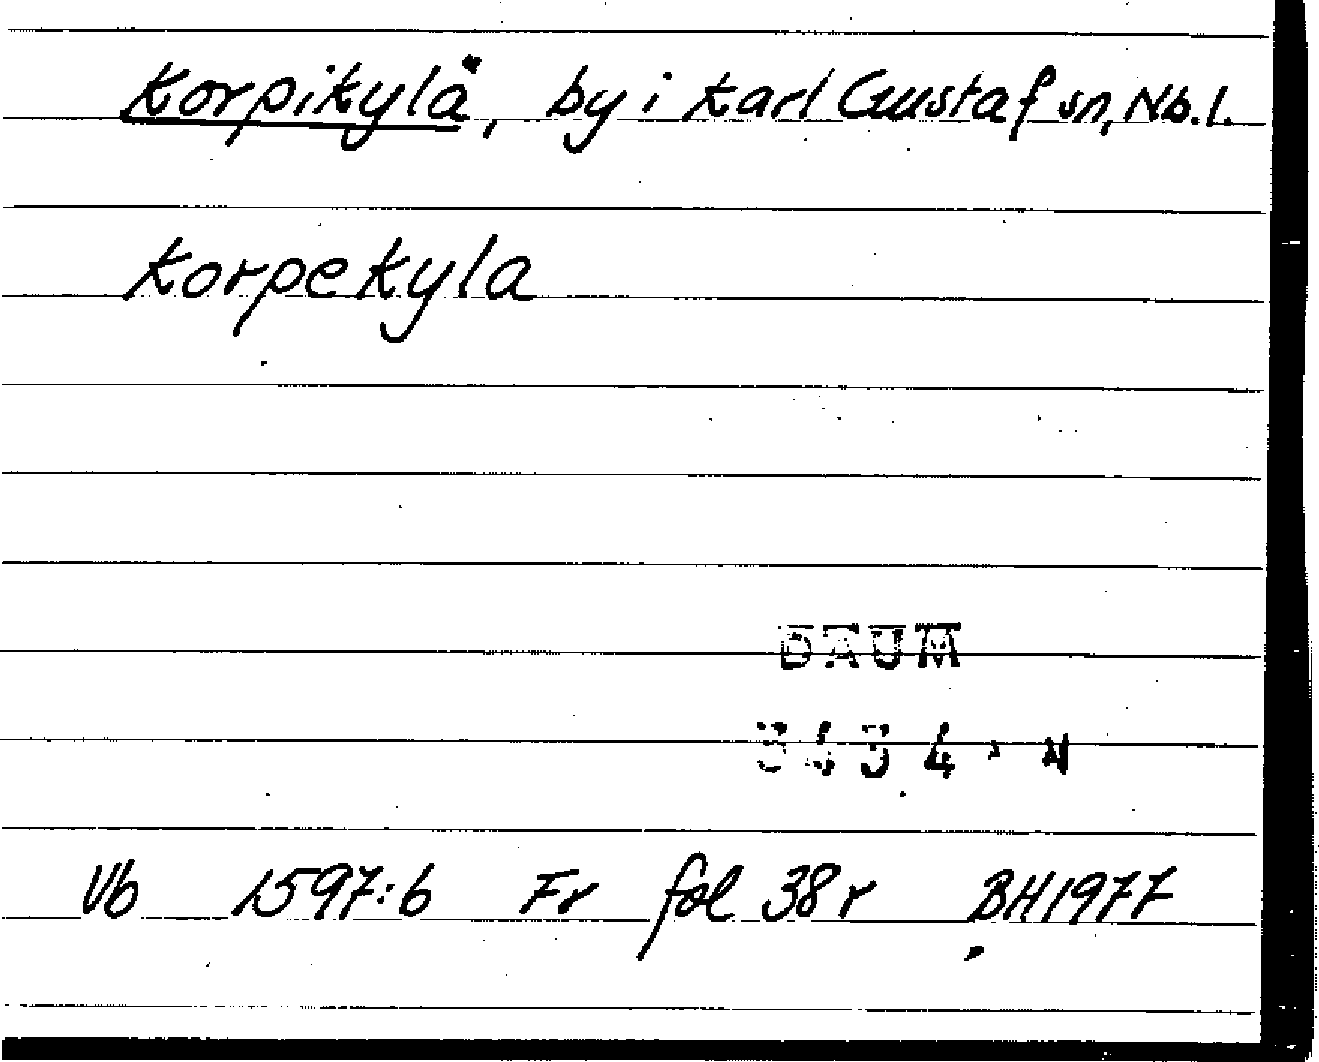 Korpikylä, by i Karl Gustaf sn, Nb.l.
Korpekyla
DAUM
3434 · N
Vb 1597:6 Fr fol 38r BH1977